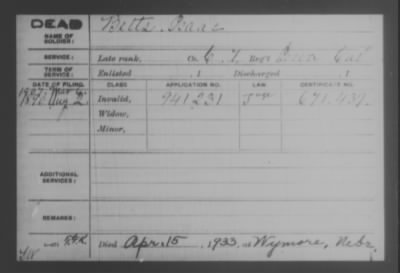 DEAD
NAME OF SOLDIER: Betts, Isaac
SERVICE: Late rank, Co. C, 7, Reg't Iowa Cav
TERM OF SERVICE: Enlisted , 1 Discharged , 1
DATE OF FILING. CLASS APPLICATION NO. LAW CERTIFICATE NO.
1907 Mar
1890 Aug 2. Invalid, 941,231 671,437.
Widow,
Minor,
ADDITIONAL SERVICES:
REMARKS:
Died Apr. 15, 1933, at Wymore, Nebr.